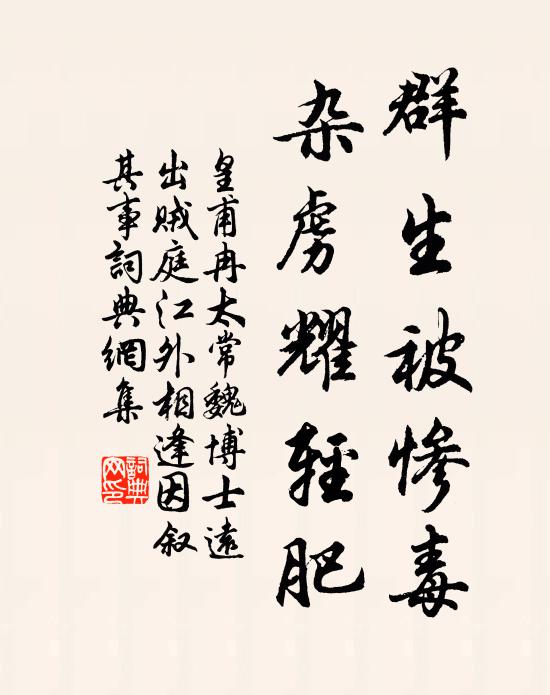 群生被惨毒
杂虏耀轻肥
皇甫冉太常魏博士远
出贼庭江外相逢因叙
其事词典網集
詞典
网印